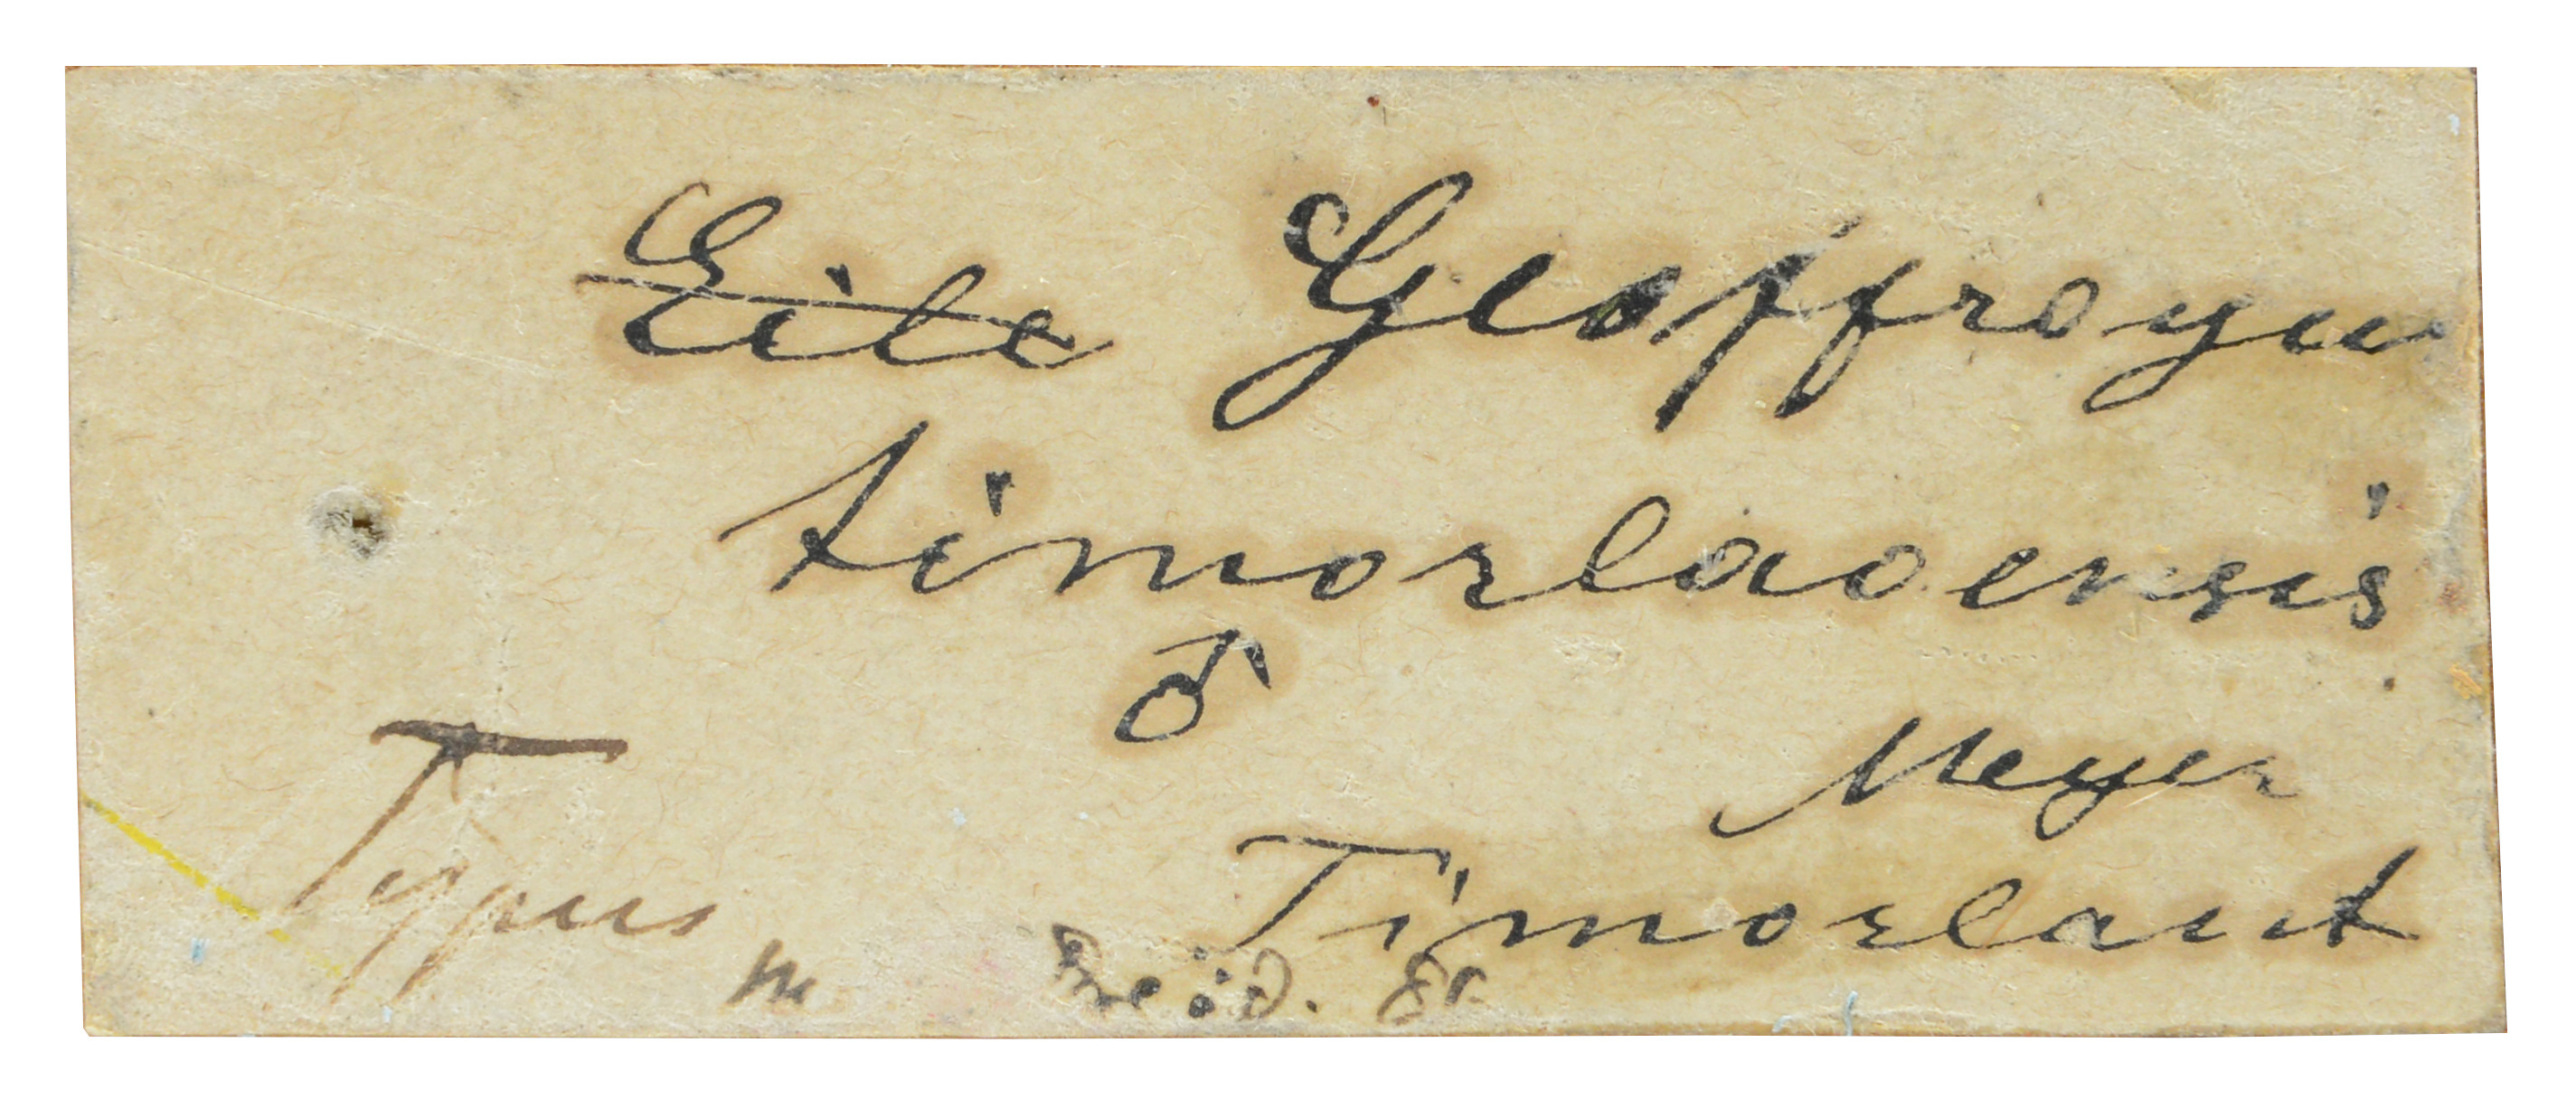 ~~Eile~~ Geoffroyus
timorlaoensis
♂
Meyer
Timorlaut
Typus